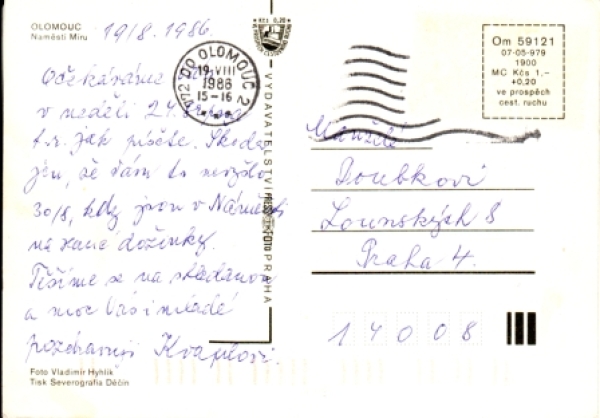 OLOMOUC
Náměstí Míru
19/8. 1986.
Očekáváme Vás
v neděli 24. srpna
t.r. jak píšete. Škoda
jen, že Vám to nevyšlo
30/8, kdy jsou v Náměšti
na Hané dožínky.
Těšíme se na shledanou
a moc Vás i mladé
pozdravují Kvapilovi.
Foto Vladimír Hyhlík
Tisk Severografia Děčín
Kčs 0,20
VYDAVATELSTVÍ PRESSFOTO PRAHA
772 00 OLOMOUC 2
19.VIII
1986
15-16
Om 59121
07-05-979
1900
MC Kčs 1.–
+0,20
ve prospěch
cest. ruchu
Manželé
Doubkovi
Lounských 8
Praha 4.
14008